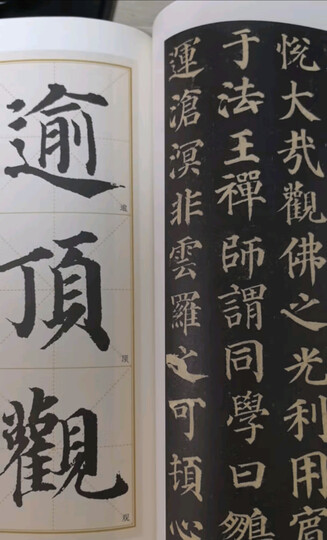 悅大哉觀佛之光利用賓
于法王禪師謂同學曰鵬
運滄溟非雲羅之可頓心
逾
頂
顶
觀
观